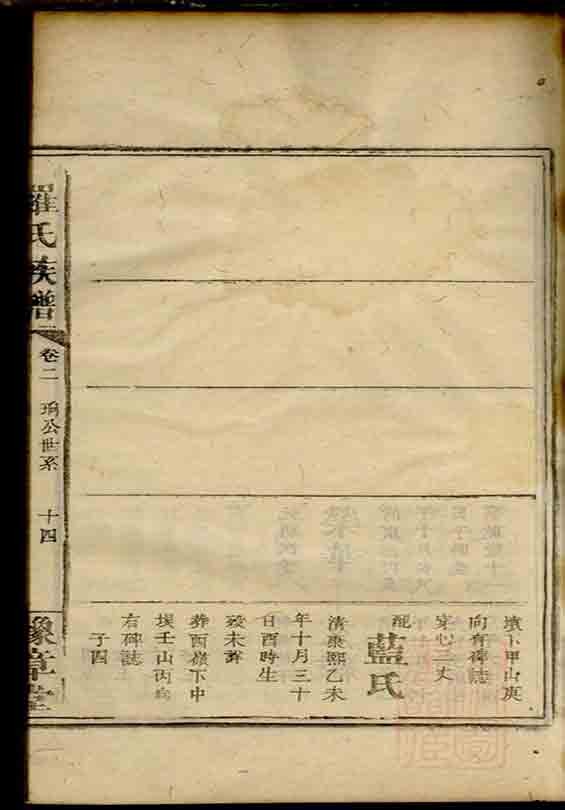 壙卜甲山庚
向有碑誌
穿心三丈
配
藍氏
清康熙乙未
年十月三十
日酉時生
歿未詳
葬酉嶺下中
垠壬山丙向
右碑誌
子四
羅氏族譜
卷二
公世系
十四
豫章堂